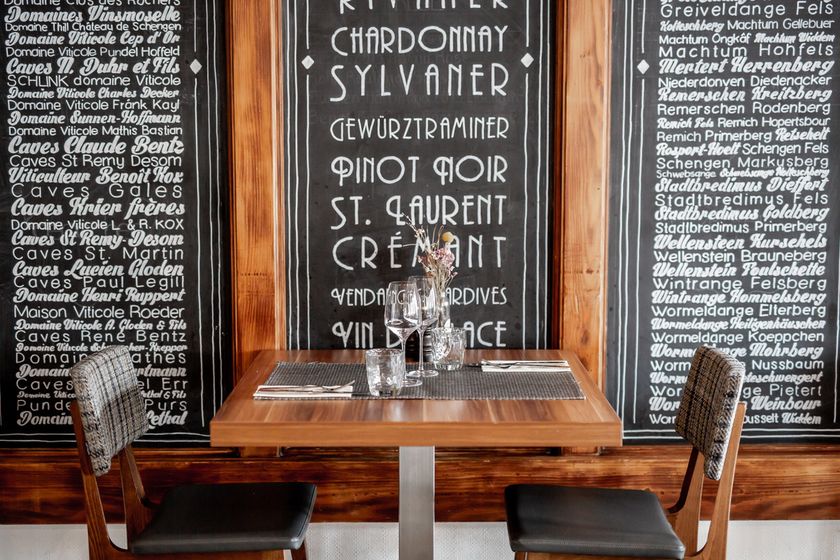 Domaine Clos des Rochers
Domaines Vinsmoselle
Domaine Thill Château de Schengen
Domaine Viticole Cep d'Or
Domaine Viticole Pundel Hoffeld
Caves N. Duhr et Fils
SCHLINK domaine Viticole
Domaine Viticole Charles Decker
Domaine Viticole Fränk Kayl
Domaine Sunnen-Hoffmann
Domaine Viticole Mathis Bastian
Caves Claude Bentz
Caves St Remy Desom
Viticulteur Benoît Kox
Caves Gales
Caves Krier frères
Domaine Viticole L. & R. KOX
Caves St Remy-Desom
Caves St. Martin
Caves Lucien Gloden
Caves Paul Legill
Domaine Henri Ruppert
Maison Viticole Roeder
Domaine Viticole A. Gloden & Fils
Caves René Bentz
Domaine
Domaine
Caves
Pundel Purs
Domaine
CHARDONNAY
SYLVANER
GEWÜRZTRAMINER
PINOT NOIR
ST. LAURENT
CRÉMANT
VIN
Greiveldange Fels
Machtum Gellebuer
Machtum Ongkäf Machtum Widdem
Machtum Hohfels
Mertert Herrenberg
Niederdonven Diedenacker
Remerschen Kreitzberg
Remerschen Rodenberg
Remich Fels Remich Hopertsbour
Remich Primerberg
Rosport-Hoelt Schengen Fels
Schengen Markusberg
Schwebsange
Stadtbredimus Dieffert
Stadtbredimus Fels
Stadtbredimus Goldberg
Stadtbredimus Primerberg
Wellenstein Kurschels
Wellenstein Brauneberg
Wellenstein Foulschette
Wintrange Felsberg
Wintrange Hommelsberg
Wormeldange Elterberg
Wormeldange Heiligenhäuschen
Wormeldange Koeppchen
Wormeldange Mohrberg
Wormeldange Nussbaum
Wormeldange Pietert
Weinbour